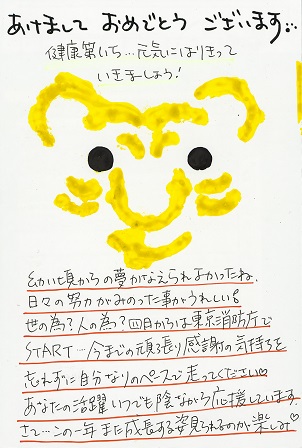 あけまして おめでとう ございます…
健康第いち…元気にはりきって
いきましょう!
幼い頃からの夢かなえられよかったね。
日々の努力がみのった事がうれしい。
世の為?人の為?四日からは東京消防庁で
START…今までの頑張り感謝の気持ちを
忘れずに自分なりのペースで走ってください♡
あなたの活躍いつでも陰ながら応援しています。
さて…この一年また成長する姿見られるのが楽しみ♡